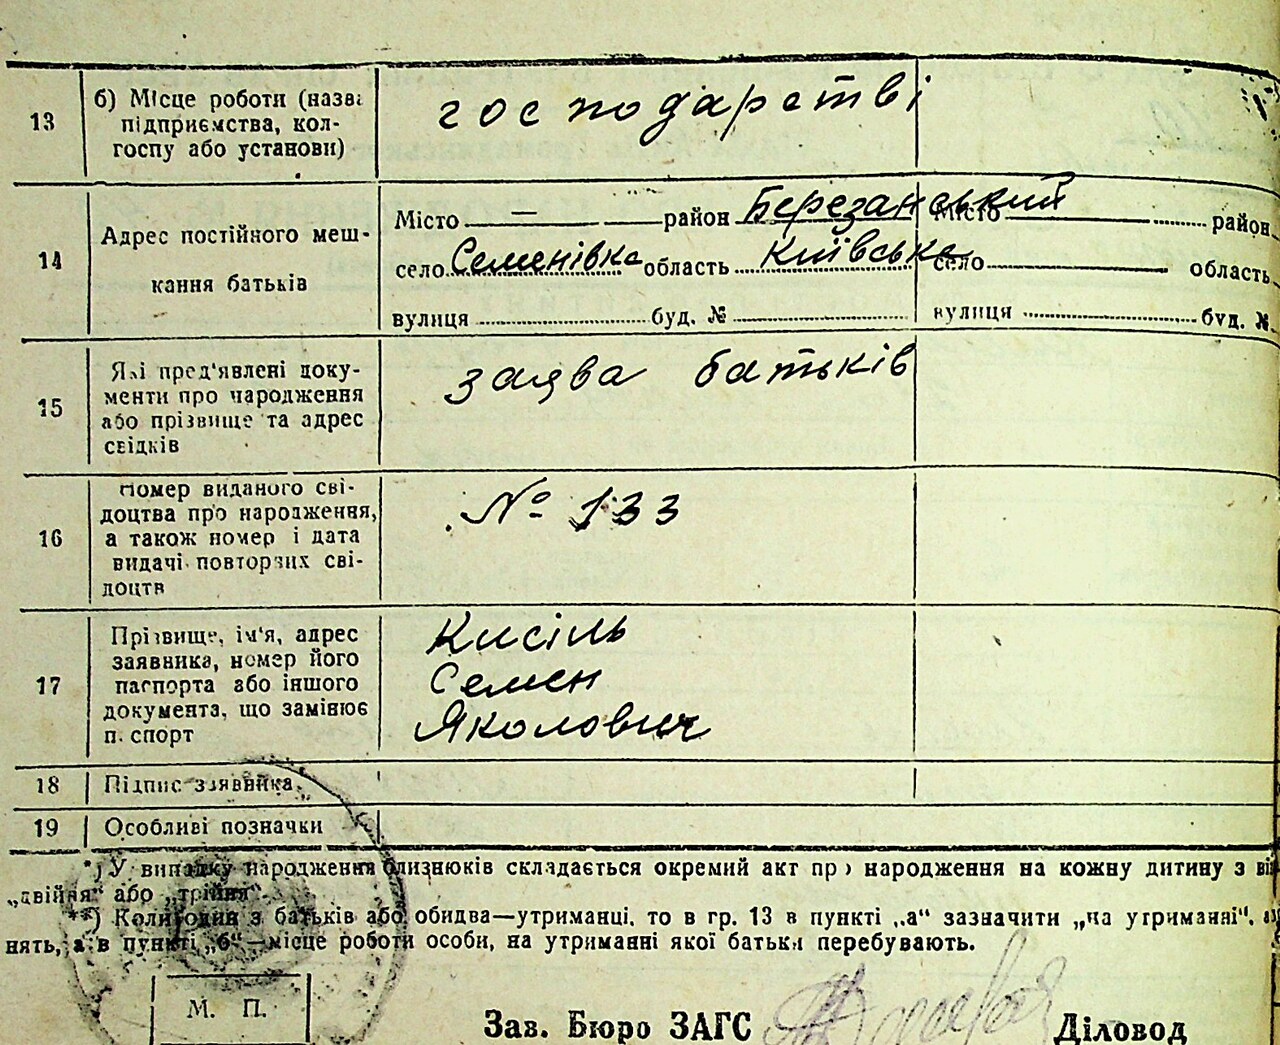 13
б) Місце роботи (назва
підприємства, кол-
госпу або установи)
господарстві
14
Адрес постійного меш-
кання батьків
Місто — район Березанський
село Семенівка область Київська
вулиця буд. №
Місто район
село область
вулиця буд. №
15
Які пред'явлені доку-
менти про народження
або прізвище та адрес
свідків
заява батьків
16
Номер виданого сві-
доцтва про народження,
а також номер і дата
видачі повторних сві-
доцтв
№ 133
17
Прізвище, ім'я, адрес
заявника, номер його
паспорта або іншого
документа, що замінює
п. спорт
Кисіль
Семен
Яколович
18
Підпис заявника
19
Особливі позначки
*) У випадку народження близнюків складається окремий акт про народження на кожну дитину з ві
„двійня" або „трійня".
**) Коли один з батьків або обидва—утриманці, то в гр. 13 в пункті „а" зазначити „на утриманні", а
нять, а в пункті „б"—місце роботи особи, на утриманні якої батьки перебувають.
М. П.
Зав. Бюро ЗАГС
Діловод